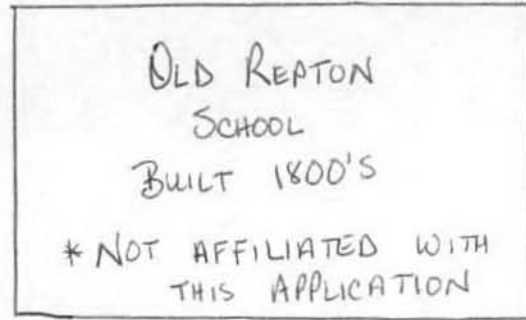 OLD REPTON
SCHOOL
BUILT 1800'S
* NOT AFFILIATED WITH
THIS APPLICATION